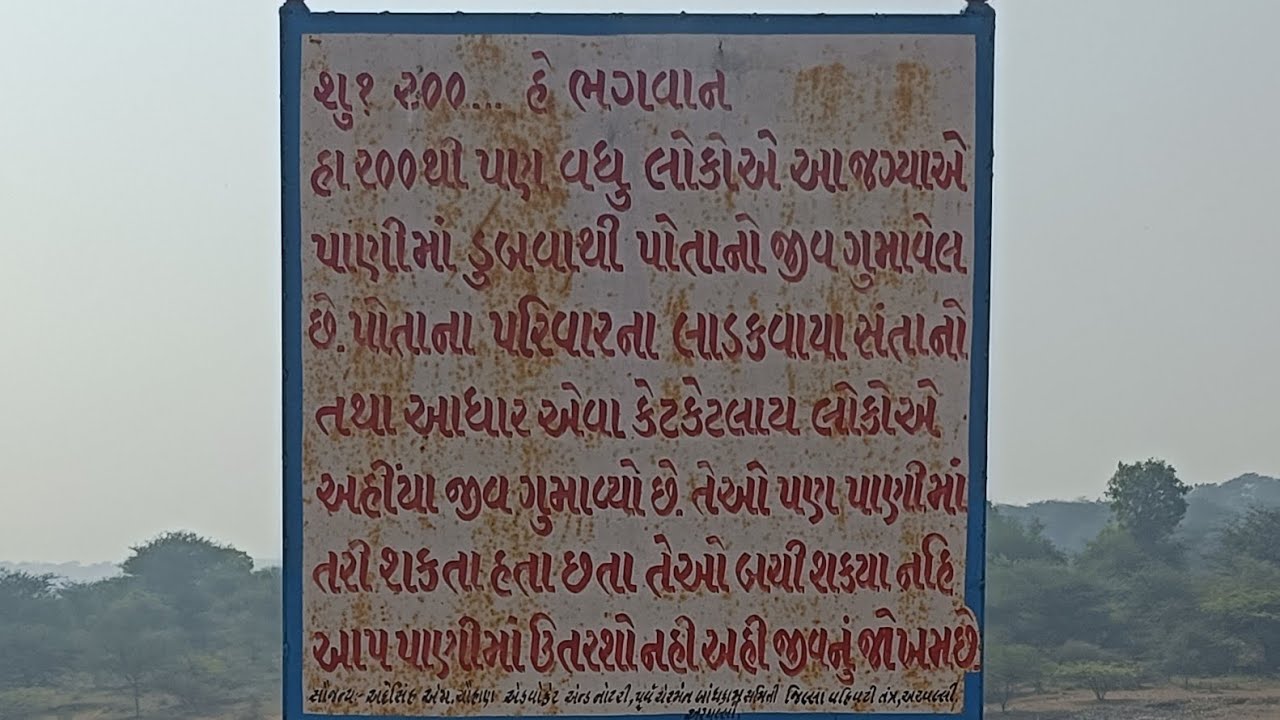 શુ? ૨૦૦... હે ભગવાન
હા ૨૦૦થી પણ વધુ લોકોએ આ જગ્યાએ
પાણીમાં ડુબવાથી પોતાનો જીવ ગુમાવેલ
છે. પોતાના પરિવારના લાડકવાયા સંતાનો
તથા આધાર એવા કેટકેટલાય લોકોએ
અહીંયા જીવ ગુમાવ્યો છે. તેઓ પણ પાણીમાં
તરી શકતા હતા છતા તેઓ બચી શકયા નહિ
આપ પાણીમાં ઉતરશો નહી અહી જીવનું જોખમ છે
સૌજન્ય:- અદેસિંહ એમ. ચૌહાણ એડવોકેટ એન્ડ નોટરી, પુર્વ ચેરમેન બાંધકામ સમિતી જિલ્લા પંચાયત, અરવલ્લી